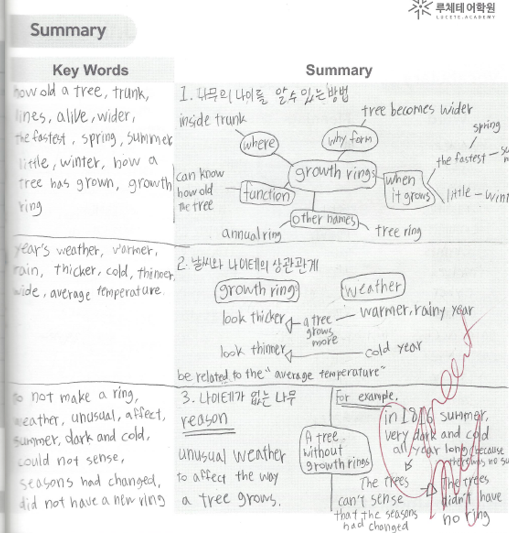 루체테어학원
LUCETE ACADEMY
Summary
Key Words
Summary
how old a tree, trunk,
lines, alive, wider,
the fastest, spring, summer
little, winter, how a
tree has grown, growth
ring
1. 나무의 나이를 알 수 있는 방법
inside trunk
where
why form
tree becomes wider
growth rings
can know
how old
the tree
function
when
it grows
the fastest
spring
little - wint
other names
annual ring
tree ring
year's weather, warmer,
rain, thicker, cold, thinner,
wide, average temperature.
2. 날씨와 나이테의 상관관계
growth ring
weather
look thicker
a tree
grows
more
warmer, rainy year
look thinner
cold year
be related to the "average temperature"
to not make a ring,
weather, unusual, affect,
summer, dark and cold,
could not sense,
seasons had changed,
did not have a new ring
3. 나이테가 없는 나무
reason
unusual weather
to affect the way
a tree grows.
for example,
A tree
without
growth rings
in 1816 summer,
very dark and cold
all year long because
there was no su
The trees
can't sense
that the seasons
had changed
The trees
didn't have
no ring